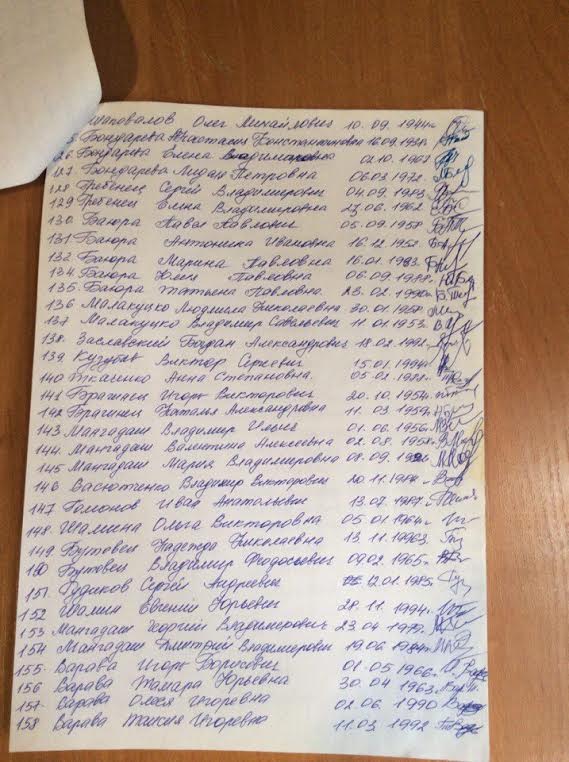 Шаповалов Олег Михайлович 10.09.1944г.
Бондарева Анастасия Константиновна 16.09.1938г.
126. Бондарева Елена Владимировна 02.10.1962
127. Бондарева Лидия Петровна 06.03.1972г.
128. Гребенец Сергей Владимирович 04.09.1983
129 Гребенец Елена Владимировна 27.06.1962
130. Баюра Павел Павлович 05.09.1958
131. Баюра Антонина Ивановна 16.12.1952.
132 Баюра Марина Павловна 16.01.1983.
134. Баюра Юлия Павловна 06.09.1978.
135. Баюра Татьяна Павловна 23.02.1990г.
136. Малакуцко Людмила Николаевна 30.01.
137 Малакуцко Владимир Савельевич 11.01.1953.
138. Заславский Богдан Александрович 18.02.1991.
139. Виктор Сергеевич 15.01.1994г.
140 Ткаченко Анна Степановна. 05.02.
141 Брагинец Игорь Викторович 20.10.1954г.
142 Брагинец Наталья Александровна 11.03 1959г.
143 Мангадаш Владимир Ильич 01.06.1956
144. Мангадаш Валентина Алексеевна 02.08.1958г.
145 Мангадаш Мария Владимировна 08.09.
146 Васютченко Владимир Викторович 20.11.
147. Гомонов Иван Анатольевич 13.07.1987г.
148. Шамина Ольга Викторовна 05.01.1964г.
149. Бутовец Надежда Николаевна 13.11.1996г.
150 Бутовец Владимир Феодосьевич 09.02.1965г.
151. Гудиков Сергей Андреевич 12.01.1985г.
152 Шамин Евгений Юрьевич 28.11.1994г.
153 Мангадаш Георгий Владимирович 23.04
154 Мангадаш Дмитрий Владимирович 19.06
155. Варава Игорь Борисович 01.05 1966г.
156 Варава Тамара Юрьевна 30.04 1963г.
157. Варава Олеся Игоревна 02.06 1990
158 Варава Таисия Игоревна 11.03 1992